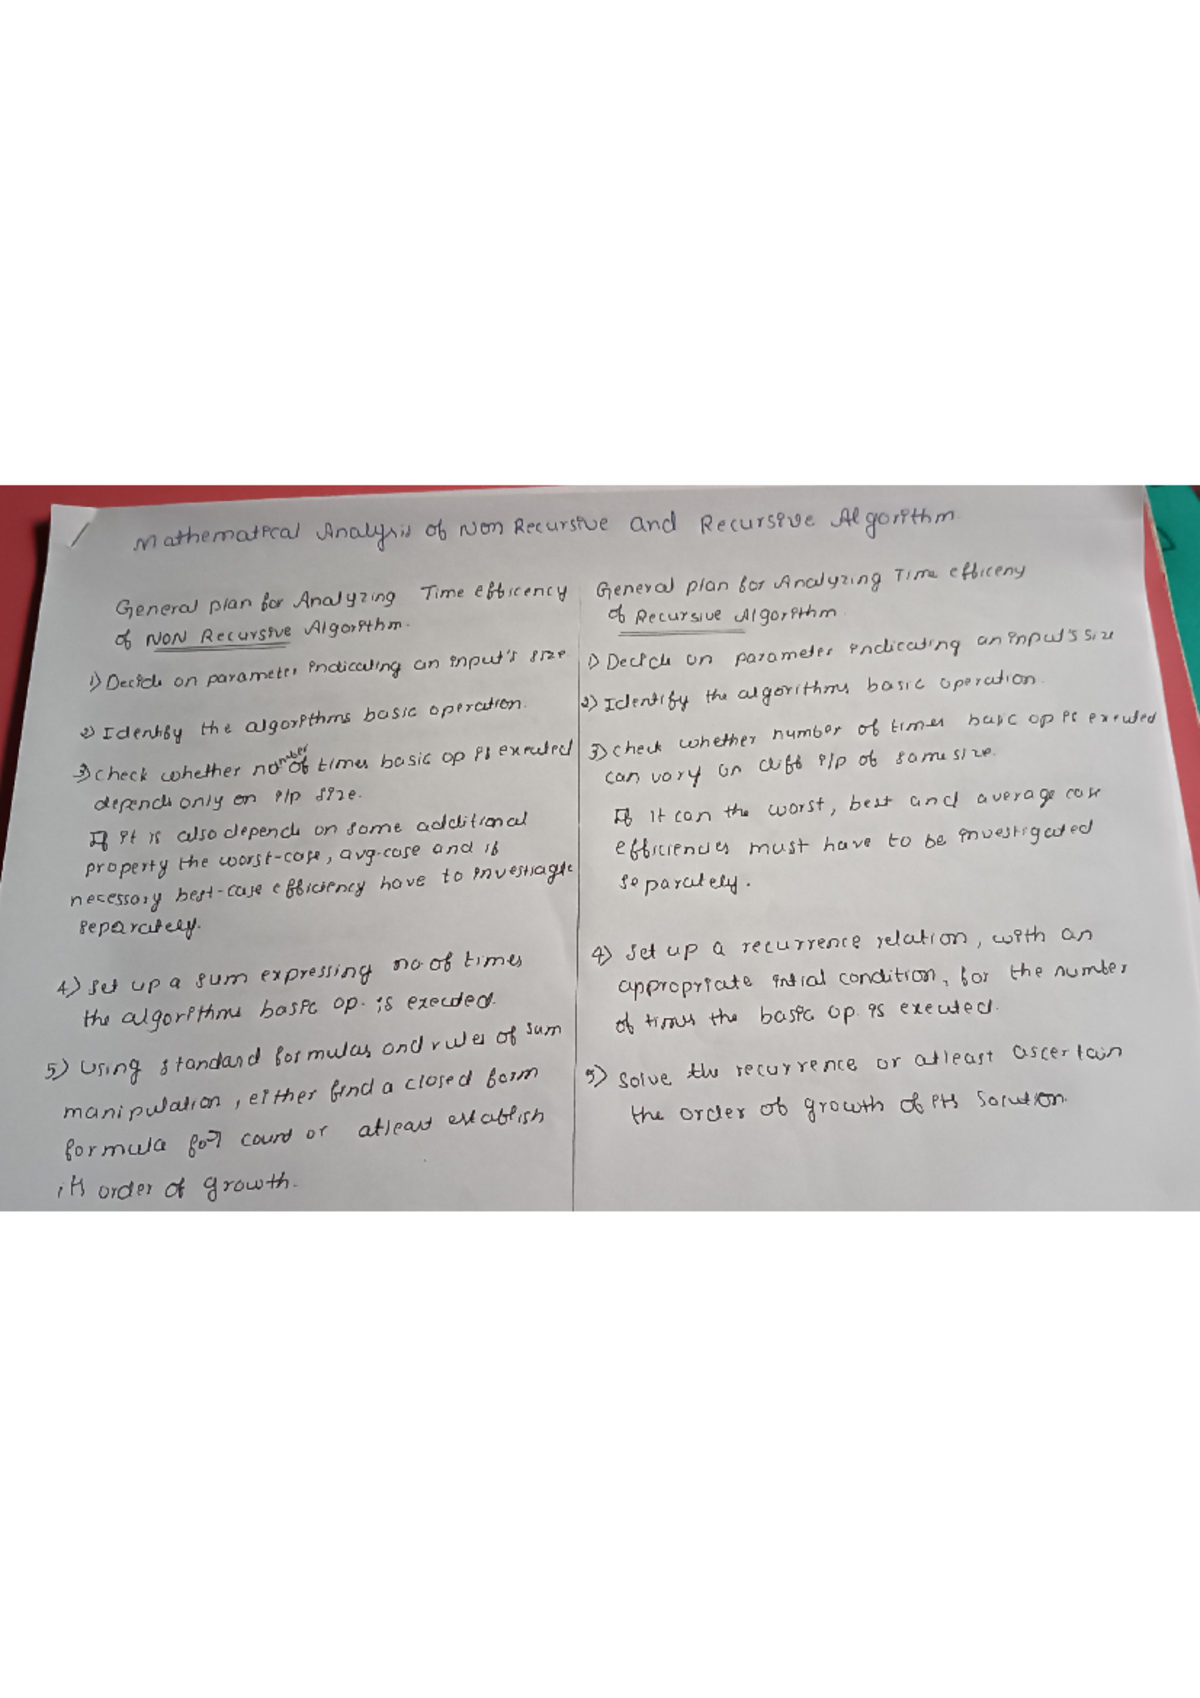 Mathematical Analysis of Non Recursive and Recursive Algorithm.
General plan for Analyzing Time efficency
of NON Recursive Algorithm.
1) Decide on parameter indicating an input's size.
2) Identify the algorithms basic operation.
3) check whether no number of times basic op is executed
depends only on i/p size.
If it is also depends on some additional
property the worst-case, avg-case and if
necessary best-case efficiency have to investiagte
seperately.
4) Set up a sum expressing no of times
the algorithms basic op. is executed.
5) Using standard formulas and rules of sum
manipulation, either find a closed form
formula for count or atleast establish
its order of growth.
General plan for Analyzing Time efficeny
of Recursive Algorithm.
1) Decide on parameter indicating an input's size
2) Identify the algorithms basic operation.
3) check whether number of times basic op is executed
can vary on diff i/p of same size.
If it can the worst, best and average case
efficiencies must have to be investigated
separately.
4) Set up a recurrence relation, with an
appropriate intial condition, for the number
of times the basic op. is executed.
5) Solve the recurrence or atleast ascertain
the order of growth of its solution.